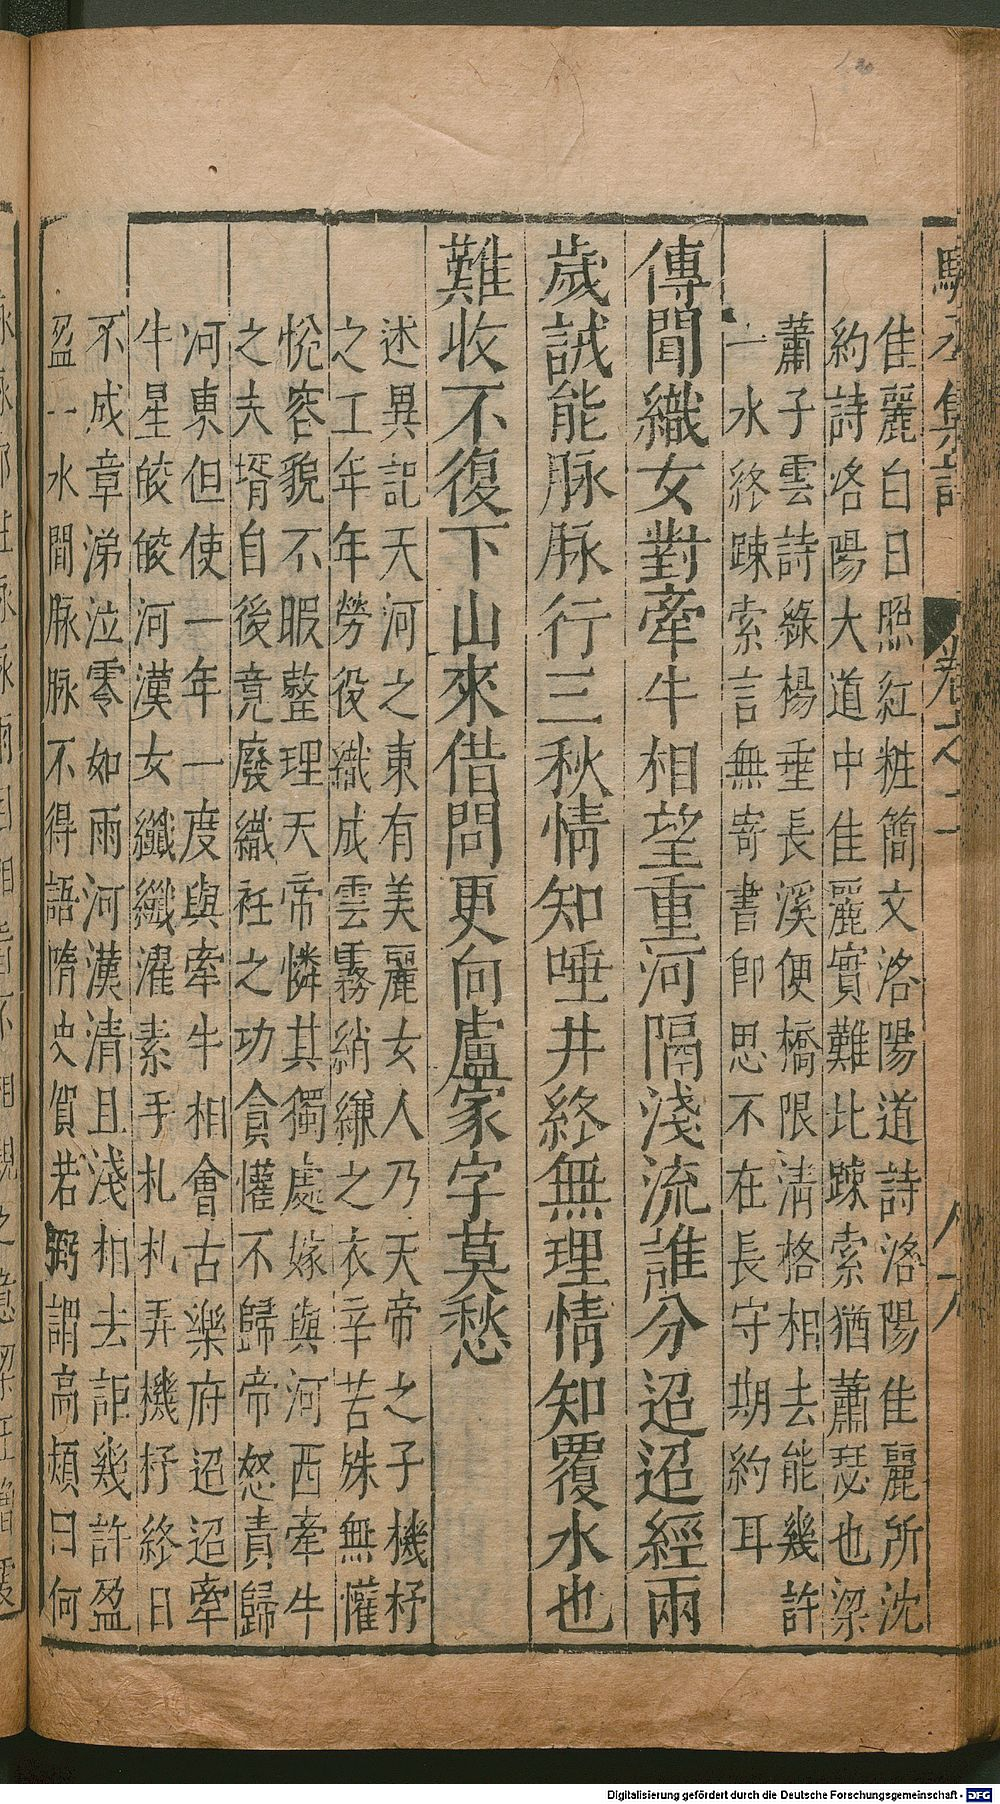 佳麗白日照紅粧簡文洛陽道詩洛陽佳麗所沈
約詩洛陽大道中佳麗實難比踈索猶蕭瑟也梁
蕭子雲詩綠楊垂長溪便橋限清格相去能幾許
一水終踈索言無寄書即思不在長守期約耳
傳聞織女對牽牛相望重河隔淺流誰分迢迢經兩
歲誠能脉脉行三秋情知唾井終無理情知覆水也
難收不復下山來借問更向盧家字莫愁
述異記天河之東有美麗女人乃天帝之子機杼
之工年年勞役織成雲霧綃縑之衣辛苦殊無懽
悅容貌不暇整理天帝憐其獨處嫁與河西牽牛
之夫壻自後竟廢織衽之功貪懽不歸帝怒責歸
河東但使一年一度與牽牛相會古樂府迢迢牽
牛星皎皎河漢女纖纖濯素手札札弄機杼終日
不成章涕泣零如雨河漢清且淺相去詎幾許盈
盈一水間脉脉不得語隋史賀若弼謂高熲曰何
Digitalisierung gefördert durch die Deutsche Forschungsgemeinschaft - DFG